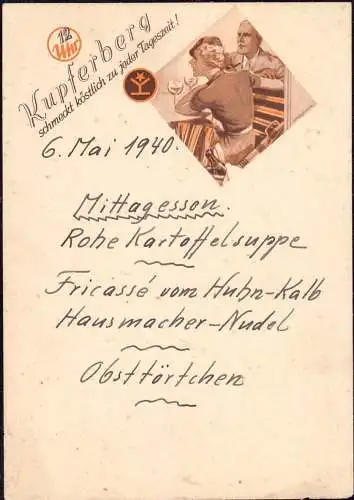 12 Uhr
Kupferberg
schmeckt köstlich zu jeder Tageszeit!
6. Mai 1940.
Mittagesson.
Rohe Kartoffelsuppe
Fricassé vom Huhn-Kalb
Hausmacher-Nudel
Obsttörtchen